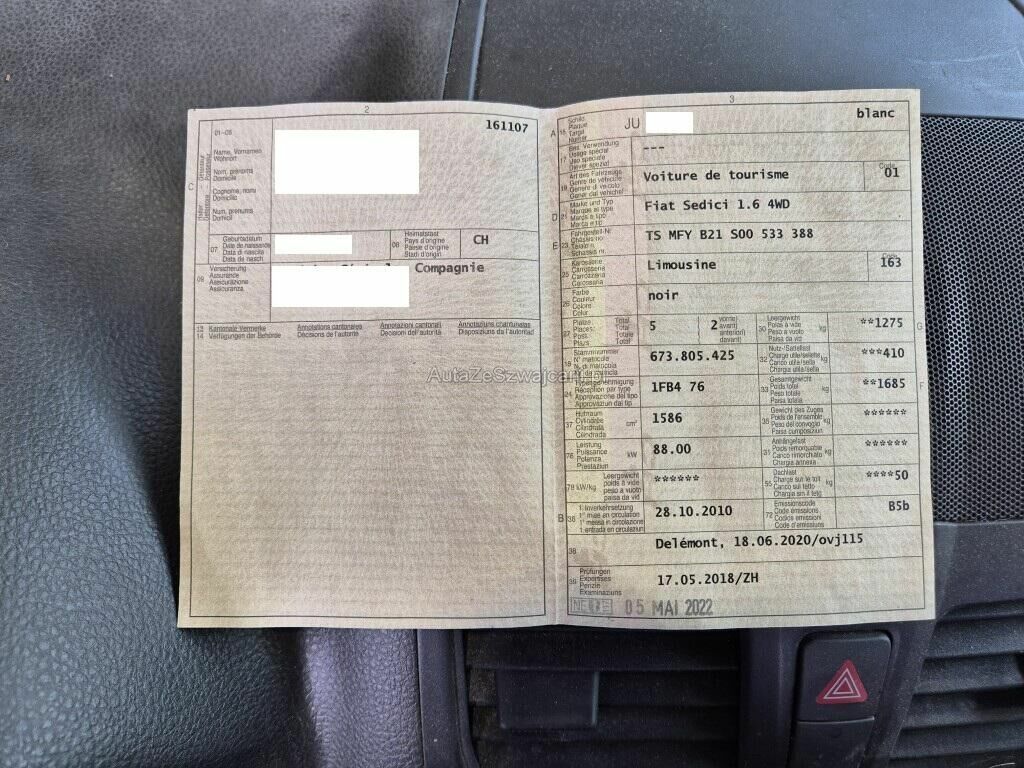 2
161107
01-06
Name, Vornamen
Wohnort
Nom, prénoms
Domicile
Cognome, nomi
Domicilio
Num, prenums
Domicil
C
07
Geburtsdatum
Date de naissance
Data di nascita
Data da nasch.
08
Heimatstaat
Pays d'origine
Paese d'origine
Stadi d'origin
CH
09
Versicherung
Assurance
Assicurazione
Assicuranza
Compagnie
13
14
Kantonale Vermerke
Verfügungen der Behörde
Annotations cantonales
Décisions de l'autorité
Annotazioni cantonali
Decisioni dell'autorità
Annotaziuns chantunalas
Disposiziuns da l'autoritad
3
A 15
Schild
Plaque
Targa
Numer
JU
blanc
17
Bes. Verwendung
Usage spécial
Uso speciale
Diever spezial
---
19
Art des Fahrzeugs
Genre de véhicule
Genere di veicolo
Gener dal vehichel
Voiture de tourisme
Code
01
D 21
Marke und Typ
Marque et type
Marca e tipo
Marca e tip
Fiat Sedici 1.6 4WD
E 23
Fahrgestell-Nr.
Châssis no
Telaio n.
Schassis nr.
TS MFY B21 S00 533 388
25
Karosserie
Carrosserie
Carrozzeria
Carossaria
Limousine
163
26
Farbe
Couleur
Colore
Colur
noir
27
Plätze
Places
Posti
Plazs
Total
Total
Totale
Total
5
2
vorne)
avant)
anteriori)
davant)
30
Leergewicht
Poids à vide
Peso a vuoto
Paisa da vid
kg
**1275
G
18
Stammnummer
N° matricule
N. di matricola
673.805.425
32
Nutz-/Sattellast
Charge utile/sellette
Carico utile/sella
Chargia utila/sella
kg
***410
24
Typengenehmigung
Réception par type
Approvazione del tipo
Approvaziun dal tip
1FB4 76
33
Gesamtgewicht
Poids total
Peso totale
Paisa totala
kg
**1685
F
37
Hubraum
Cylindrée
Cilindrata
Cilindrada
cm³
1586
35
Gewicht des Zuges
Poids de l'ensemble
Peso del convoglio
Paisa cumposiziun
kg
******
76
Leistung
Puissance
Potenza
Prestaziun
kW
88.00
31
Anhängelast
Poids remorquable
Carico rimorchiato
Chargia annexa
kg
******
78 kW/kg
Leergewicht
poids à vide
peso a vuoto
paisa da vid
******
55
Dachlast
Charge sur le toit
Carico sul tetto
Chargia sin il tetg
kg
****50
B 36
1. Inverkehrsetzung
1re mise en circulation
1a messa in circolazione
1. entrada en circulaziun
28.10.2010
72
Emissionscode
Code émissions
Codice emissioni
Code d'emissiuns
B5b
38
Delémont, 18.06.2020/ovj115
39
Prüfungen
Expertises
Perizie
Examinaziuns
17.05.2018/ZH
NE
05 MAI 2022
AutaZeSzwajcarii.pl